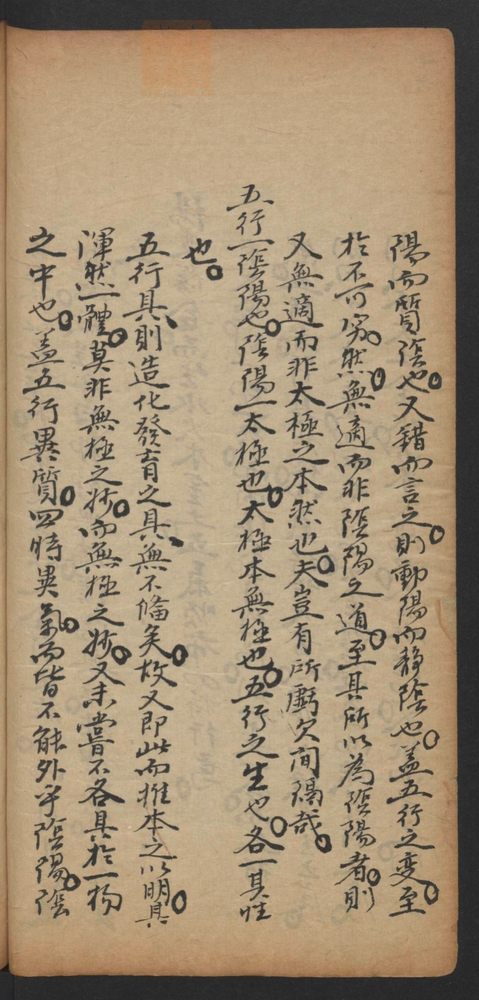 陽而質陰也。又錯而言之。則動陽而靜陰也。蓋五行之變至
於不可窮。然無適而非陰陽之道。至其所以為陰陽者。則
又無適而非太極之本然也。夫豈有所虧欠間隔哉。
五行一陰陽也。陰陽一太極也。太極本無極也。五行之生也。各一其性
也。
五行具、則造化發育之具、無不偹矣。故又即此而推本之。以明其
渾然一體。莫非無極之妙。而無極之妙。又未嘗不各具於一物
之中也。蓋五行異質。四時異氣。而皆不能外乎陰陽。陰